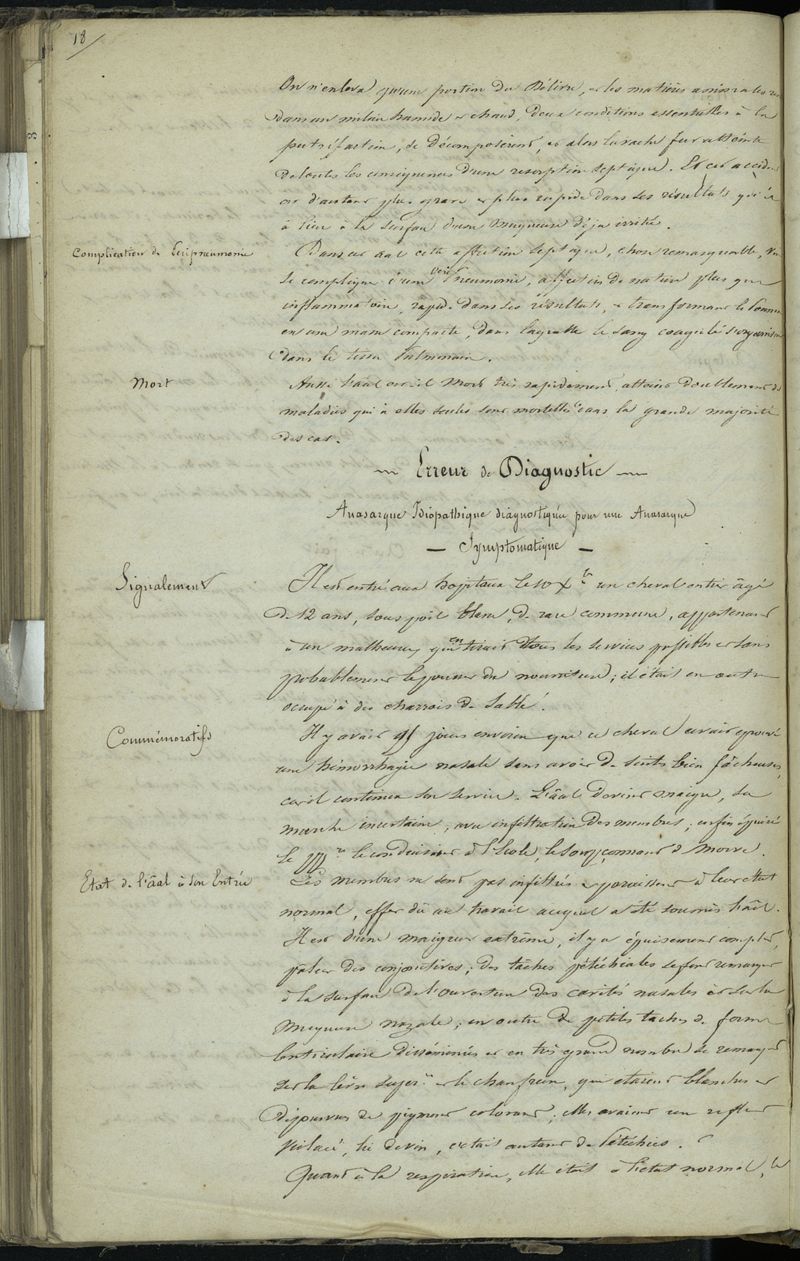 18
On n'enleva qu'une portion du Délivre, et les matières animales
dans un milieu humide et chaud, deux conditions essentielles à la
putréfaction, se décomposèrent, et alors la vache fut atteinte
de toutes les conséquences d'une résorption septique. Et cet accident
est d'autant plus grave et plus rapide dans ses résultats qu'il a
a lieu à la surface d'une muqueuse déja irritée.
Complication de Péripneumonie
Dans ce cas cette affection septique, chose remarquable,
se complique d'une Péri Pneumonie, affection de nature plus que
inflammatoire, rapide dans ses résultats, et transformant le Poumon
en une masse compacte, dans laquelle le sang coagulé s'organise
dans le tissu Pulmonaire.
Mort
Aussi l'aâl est-il Mort très rapidement, atteint doublement de
maladies qui à elles seules sont mortelles dans la grande majorité
des cas.
Erreur de Diagnostic
Anasarque Idiopathique diagnostiquée pour une Anasarque
— Symptomatique —
Signalement
Il est entré aux hopitaux le 10 Xbre un cheval entier âgé
de 12 ans, sous poil blanc, de race commune, appartenant
à un malheureux qui en tirait tous les services possibles et sans
probablement le pourvoir de nourriture; il était en outre
occupé à des charrois de sable.
Commémoratifs
Il y avait jours environ que ce cheval avait éprouvé
une hémorrhagie nasale sans avoir de suites bien fâcheuses,
car il continua son service. L'âal devint maigre, sa
marche incertaine, avec infiltration des membres; enfin épuisé
le le conduisirent à l'École, le soupçonnant de Morve.
Etat de l'âal à son Entrée
Les membres ne sont pas infiltrés et paraissent à leur état
normal, effet dû au travail auquel a été soumis l'âal.
Il est d'une maigreur extrême, il y a épuisement complet,
pâleur des conjonctives; des tâches pétéchiales se font remarquer
à la surface de l'ouverture des cavités nasales et sur la
muqueuse nazale; en outre de petites taches de forme
lenticulaire disséminées et en très grand nombre se remarquent
sur la lèvre supre et le chanfrein, qui étaient blanches et
dépourvus de pigment colorant; elles avaient un reflet
violacé, lie de vin, c'était autant de Pétéchies.
Quant à la respiration, elle était à l'état normal, le